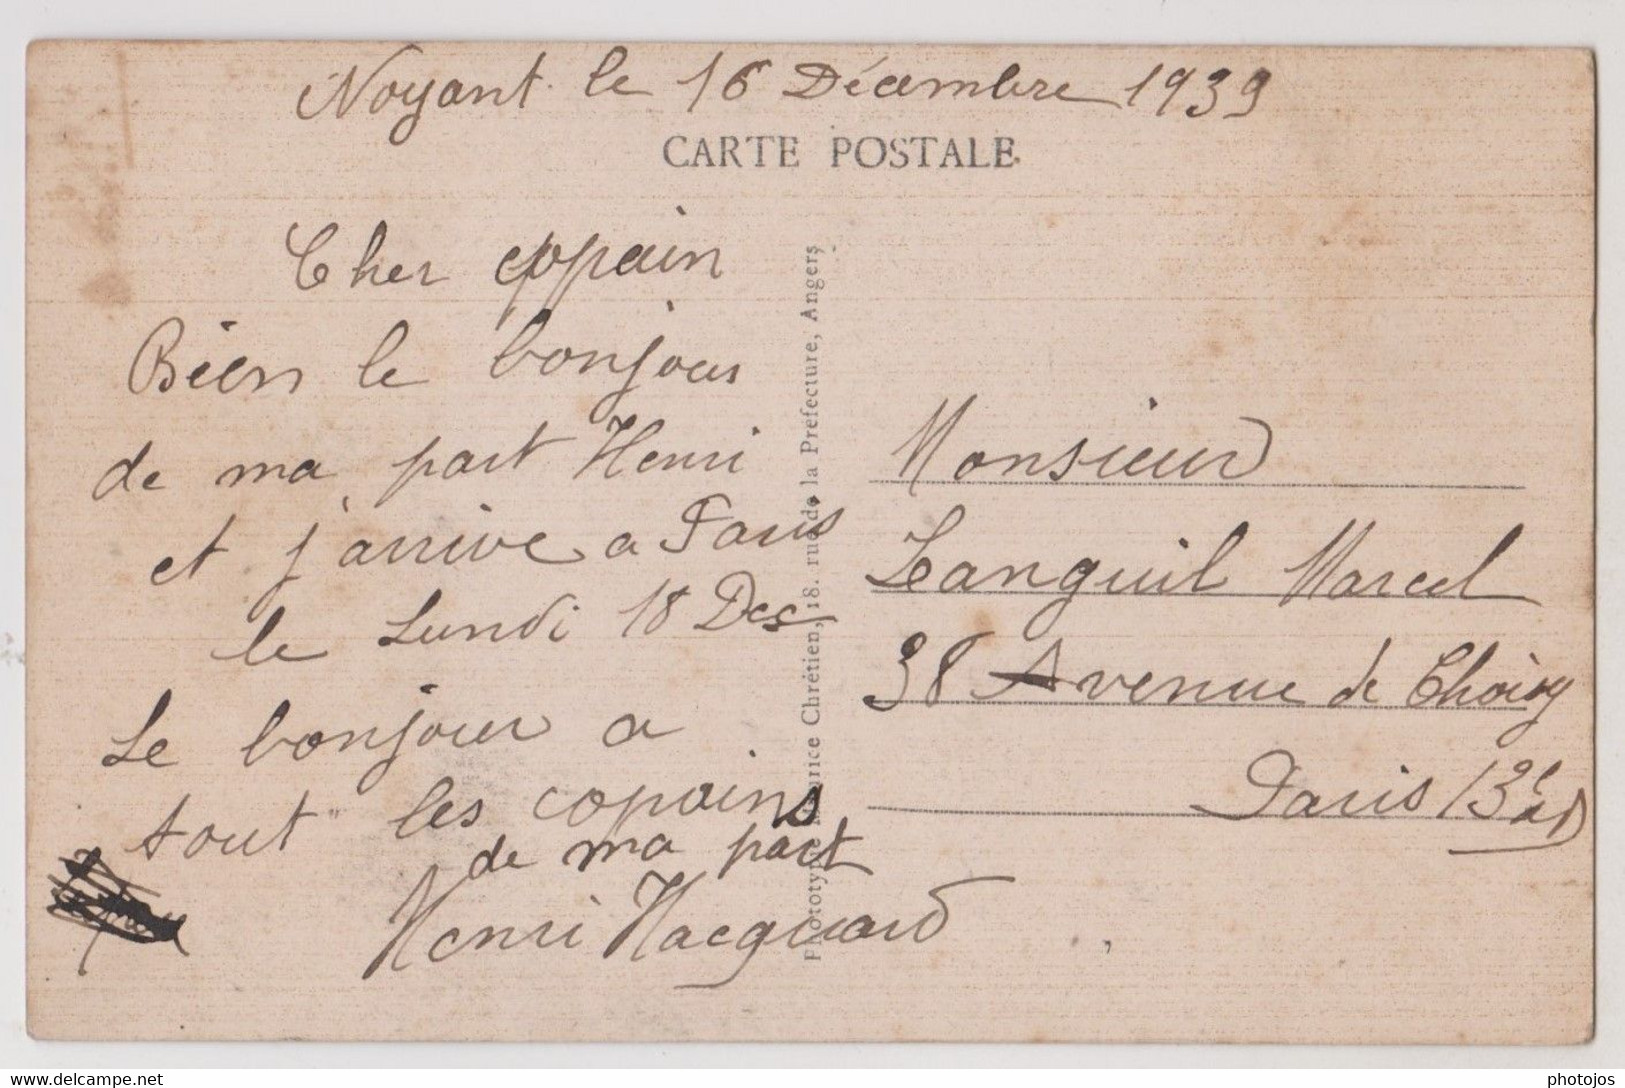 Noyant le 16 Décembre 1939
CARTE POSTALE
Cher copain
Bien le bonjour
de ma part Henri
et j'arrive a Paris
le Lundi 18 Dec
Le bonjour a
tout les copains
de ma part
Henri Hacquard
Phototypie Maurice Chrétien, 18. rue de la Prefecture, Angers
Monsieur
Leanguil Marcel
38 Avenue de Choisy
Paris 13e
www.delcampe.net
photojos